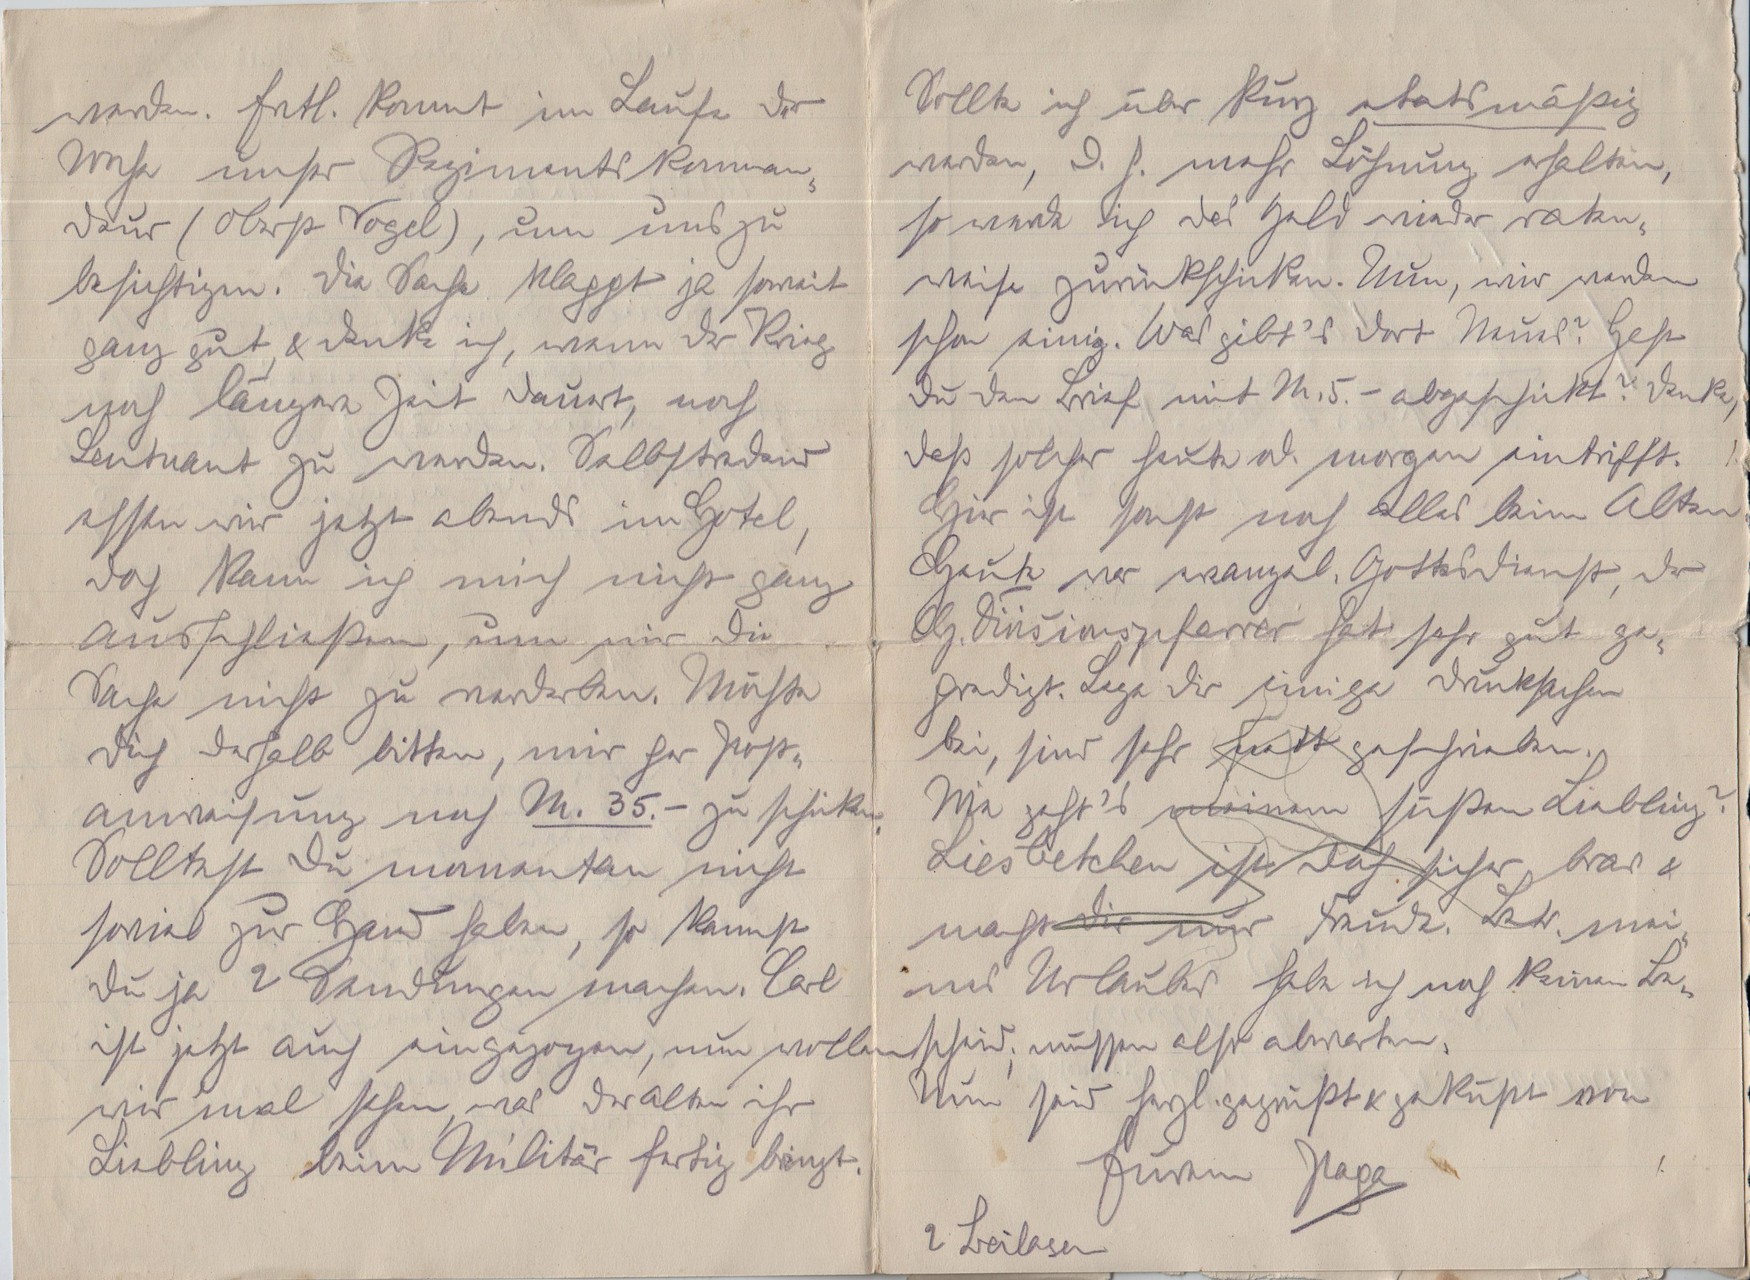 werden. Evtl. kommt im Laufe der
Woche unser Regimentskomman-
deur (Oberst Vogel), um uns zu
besichtigen. Die Sache klappt ja soweit
ganz gut, & denke ich, wenn der Krieg
noch längere Zeit dauert, noch
Leutnant zu werden. Selbstredend
essen wir jetzt abends im Hotel,
doch kann ich mich nicht ganz
ausschließen, um mir die
Sache nicht zu verderben. Möchte
Dich deshalb bitten, mir per Post-
anweisung noch M. 35.- zu schicken.
Solltest Du momentan nicht
soviel zur Hand haben, so kannst
Du ja 2 Sendungen machen. Carl
ist jetzt auch eingezogen, nun wollen
wir mal sehen, was der Alten ihr
Liebling beim Militär fertig bringt.
Sollte ich über kurz etatsmäßig
werden, d. h. mehr Löhnung erhalten,
so werde ich das Geld wieder raten-
weise zurückschicken. Nun, wir werden
schon einig. Was gibt's dort Neues? Hast
Du den Brief mit M. 5.- abgeschickt? Denke,
daß solcher heute od. morgen eintrifft.
Hier ist sonst noch alles beim Alten
Heute war evangel. Gottesdienst, der
H. Divisionspfarrer hat sehr gut ge-
predigt. Lege Dir einige Drucksachen
bei, sind sehr nett geschrieben.
Wie geht's meinem süßen Liebling?
Liesbetchen ist doch sicher brav &
macht dir nur Freude. Betr. mei-
nes Urlaubes habe ich noch keinen Be-
scheid, müssen also abwarten.
Nun seid herzl. gegrüßt & geküßt von
Eurem Papa
2 Beilagen